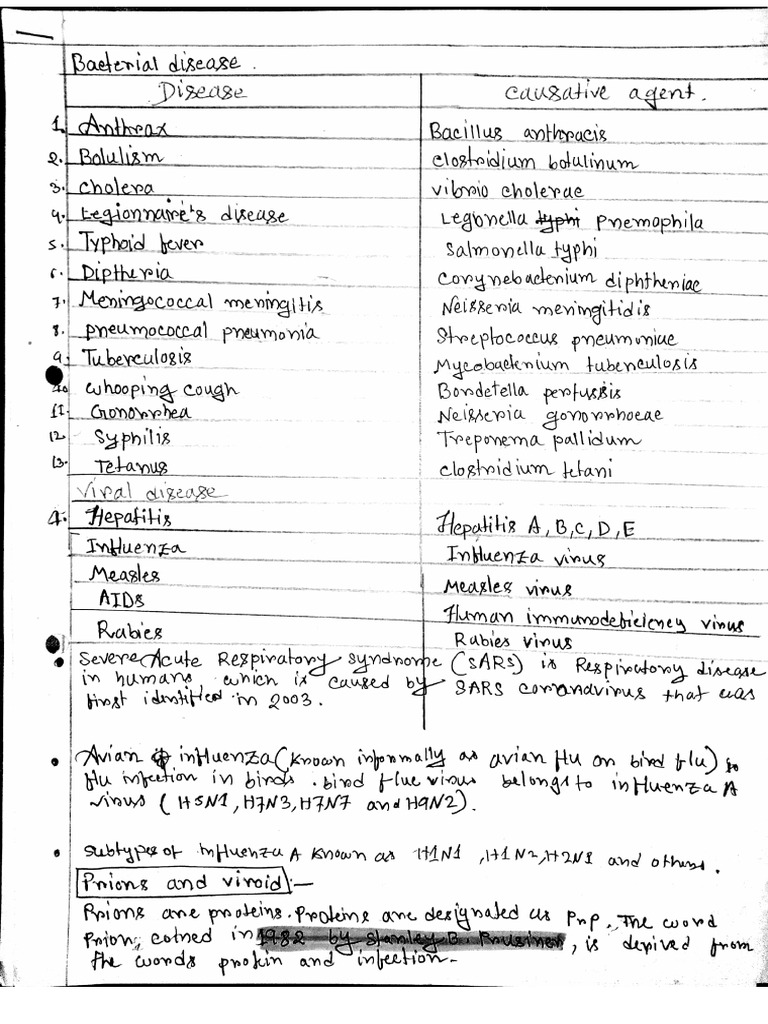 Bacterial disease.
Disease causative agent.
1. Anthrax Bacillus anthracis
2. Botulism clostridium botulinum
3. cholera vibrio cholerae
4. Legionnaire's disease Legonella typhi pnemophila
5. Typhoid fever Salmonella typhi
6. Diptheria corynebacterium diphtheriae
7. Meningococcal meningitis Neisseria meningitidis
8. pneumococcal pneumonia Streptococcus pneumoniae
9. Tuberculosis Mycobacterium tuberculosis
10. whooping cough Bordetella pertussis
11. Gonorrhea Neisseria gonorrhoeae
12. Syphilis Treponema pallidum
13. Tetanus clostridium tetani
Viral disease
Hepatitis Hepatitis A, B, C, D, E
Influenza Influenza virus
Measles Measles virus
AIDs Human immunodeficiency virus
Rabies Rabies virus
• Severe Acute Respiratory syndrome (SARs) is Respiratory disease
in humans which is caused by SARS coronavirus that was
first identified in 2003.
• Avian influenza (known informally as avian flu or bird flu) is
flu infection in birds. bird flue virus belongs to influenza A
virus (H5N1, H7N3, H7N7 and H9N2).
• subtypes of Influenza A known as H1N1, H1N2, H2N1 and others.
Prions and viroid:—
Prions are proteins. Proteins are designated as Prp. The word
Prion, coined in 1982 by Stanley B. Prusiner, is derived from
the words protein and infection-